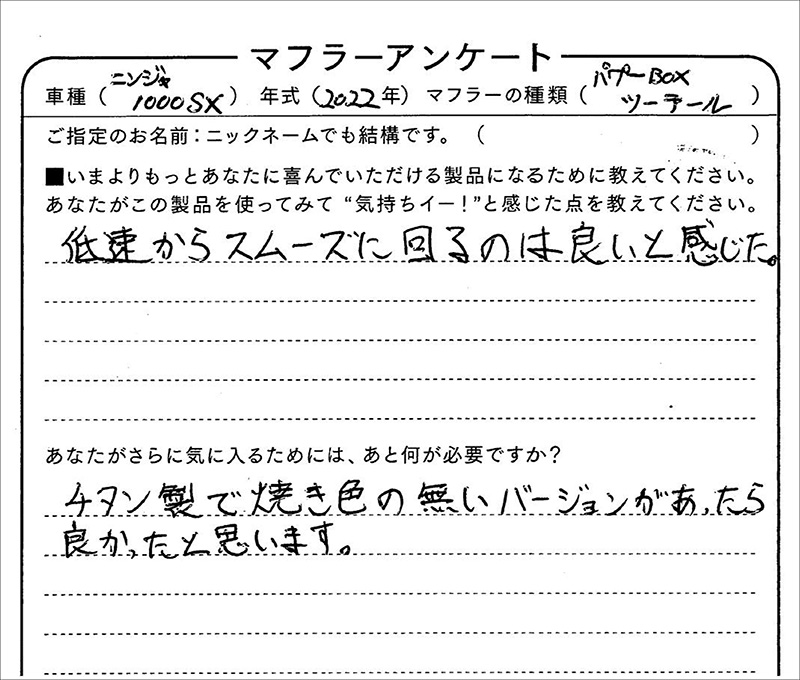 マフラーアンケート
車種（ニンジャ 1000SX） 年式（2022年） マフラーの種類（パワーBOX ツーテール）
ご指定のお名前：ニックネームでも結構です。（ ）
■いまよりもっとあなたに喜んでいただける製品になるために教えてください。
あなたがこの製品を使ってみて“気持ちイー！”と感じた点を教えてください。
低速からスムーズに回るのは良いと感じた。
あなたがさらに気に入るためには、あと何が必要ですか？
チタン製で焼き色の無いバージョンがあったら
良かったと思います。